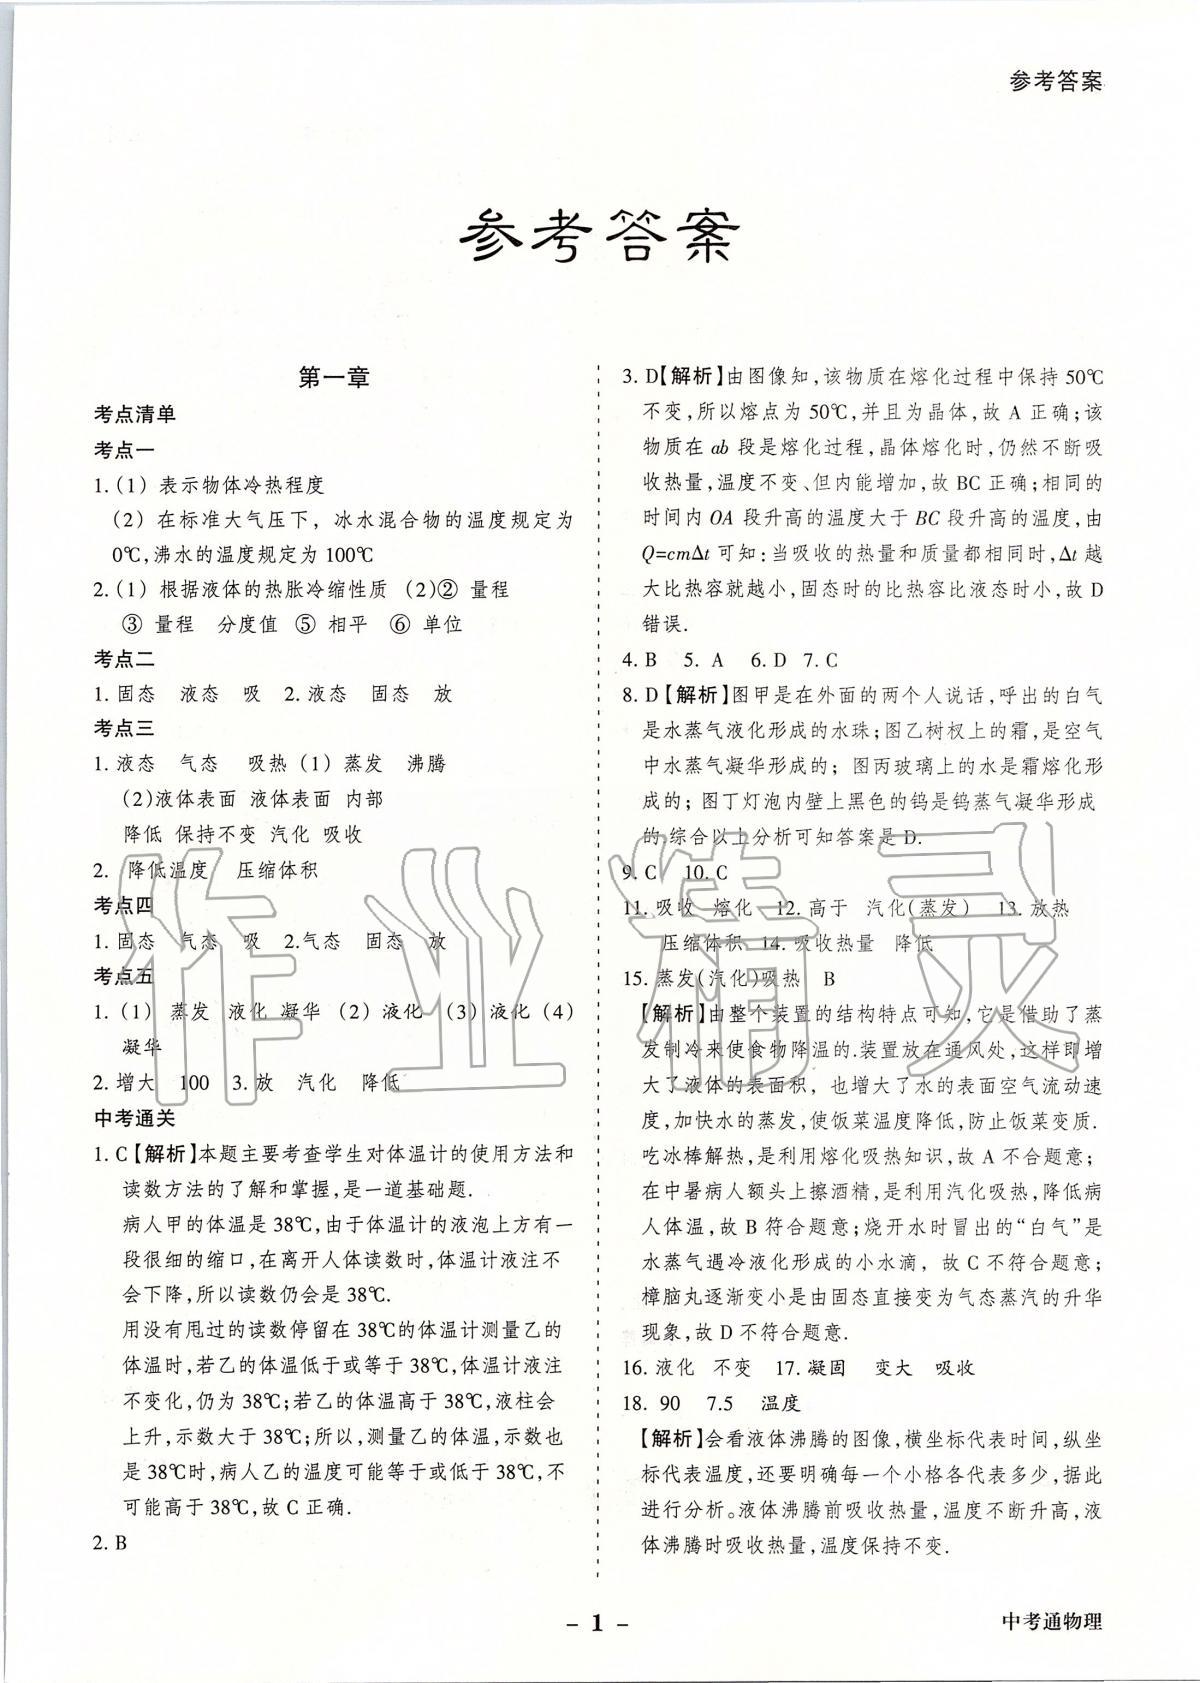 参考答案
参考答案
第一章
考点清单
考点一
1.(1) 表示物体冷热程度
(2) 在标准大气压下，冰水混合物的温度规定为
0℃,沸水的温度规定为100℃
2.(1) 根据液体的热胀冷缩性质 (2)② 量程
③ 量程 分度值 ⑤ 相平 ⑥ 单位
考点二
1.固态 液态 吸 2.液态 固态 放
考点三
1.液态 气态 吸热(1) 蒸发 沸腾
(2)液体表面 液体表面 内部
降低 保持不变 汽化 吸收
2. 降低温度 压缩体积
考点四
1.固态 气态 吸 2.气态 固态 放
考点五
1.(1) 蒸发 液化 凝华 (2) 液化 (3) 液化 (4)
凝华
2.增大 100 3.放 汽化 降低
中考通关
1. C【解析】本题主要考查学生对体温计的使用方法和
读数方法的了解和掌握,是一道基础题.
病人甲的体温是38℃,由于体温计的液泡上方有一
段很细的缩口,在离开人体读数时,体温计液注不
会下降,所以读数仍会是38℃.
用没有甩过的读数停留在38℃的体温计测量乙的
体温时,若乙的体温低于或等于38℃,体温计液注
不变化,仍为38℃;若乙的体温高于38℃,液柱会
上升,示数大于38℃;所以,测量乙的体温,示数也
是38℃时,病人乙的温度可能等于或低于38℃,不
可能高于38℃,故C正确.
2. B
3. D【解析】由图像知,该物质在熔化过程中保持50℃
不变,所以熔点为50℃,并且为晶体,故A正确;该
物质在ab段是熔化过程,晶体熔化时,仍然不断吸
收热量,温度不变、但内能增加,故BC正确;相同的
时间内OA段升高的温度大于BC段升高的温度,由
Q=cmΔt可知:当吸收的热量和质量都相同时,Δt越
大比热容就越小,固态时的比热容比液态时小,故D
错误.
4. B 5. A 6. D 7. C
8. D【解析】图甲是在外面的两个人说话,呼出的白气
是水蒸气液化形成的水珠;图乙树杈上的霜,是空气
中水蒸气凝华形成的；图丙玻璃上的水是霜熔化形
成的；图丁灯泡内壁上黑色的钨是钨蒸气凝华形成
的,综合以上分析可知答案是D.
9. C 10. C
11. 吸收 熔化 12. 高于 汽化(蒸发) 13. 放热
压缩体积 14. 吸收热量 降低
15. 蒸发(汽化)吸热 B
【解析】由整个装置的结构特点可知,它是借助了蒸
发制冷来使食物降温的.装置放在通风处,这样即增
大了液体的表面积，也增大了水的表面空气流动速
度,加快水的蒸发,使饭菜温度降低,防止饭菜变质.
吃冰棒解热,是利用熔化吸热知识,故A不合题意；
在中暑病人额头上擦酒精,是利用汽化吸热,降低病
人体温,故B符合题意;烧开水时冒出的“白气”是
水蒸气遇冷液化形成的小水滴，故C不符合题意；
樟脑丸逐渐变小是由固态直接变为气态蒸汽的升华
现象,故D不符合题意.
16. 液化 不变 17. 凝固 变大 吸收
18. 90 7.5 温度
【解析】会看液体沸腾的图像,横坐标代表时间,纵坐
标代表温度,还要明确每一个小格各代表多少,据此
进行分析。液体沸腾前吸收热量,温度不断升高,液
体沸腾时吸收热量,温度保持不变.
作业精灵
- 1 -
中考通物理